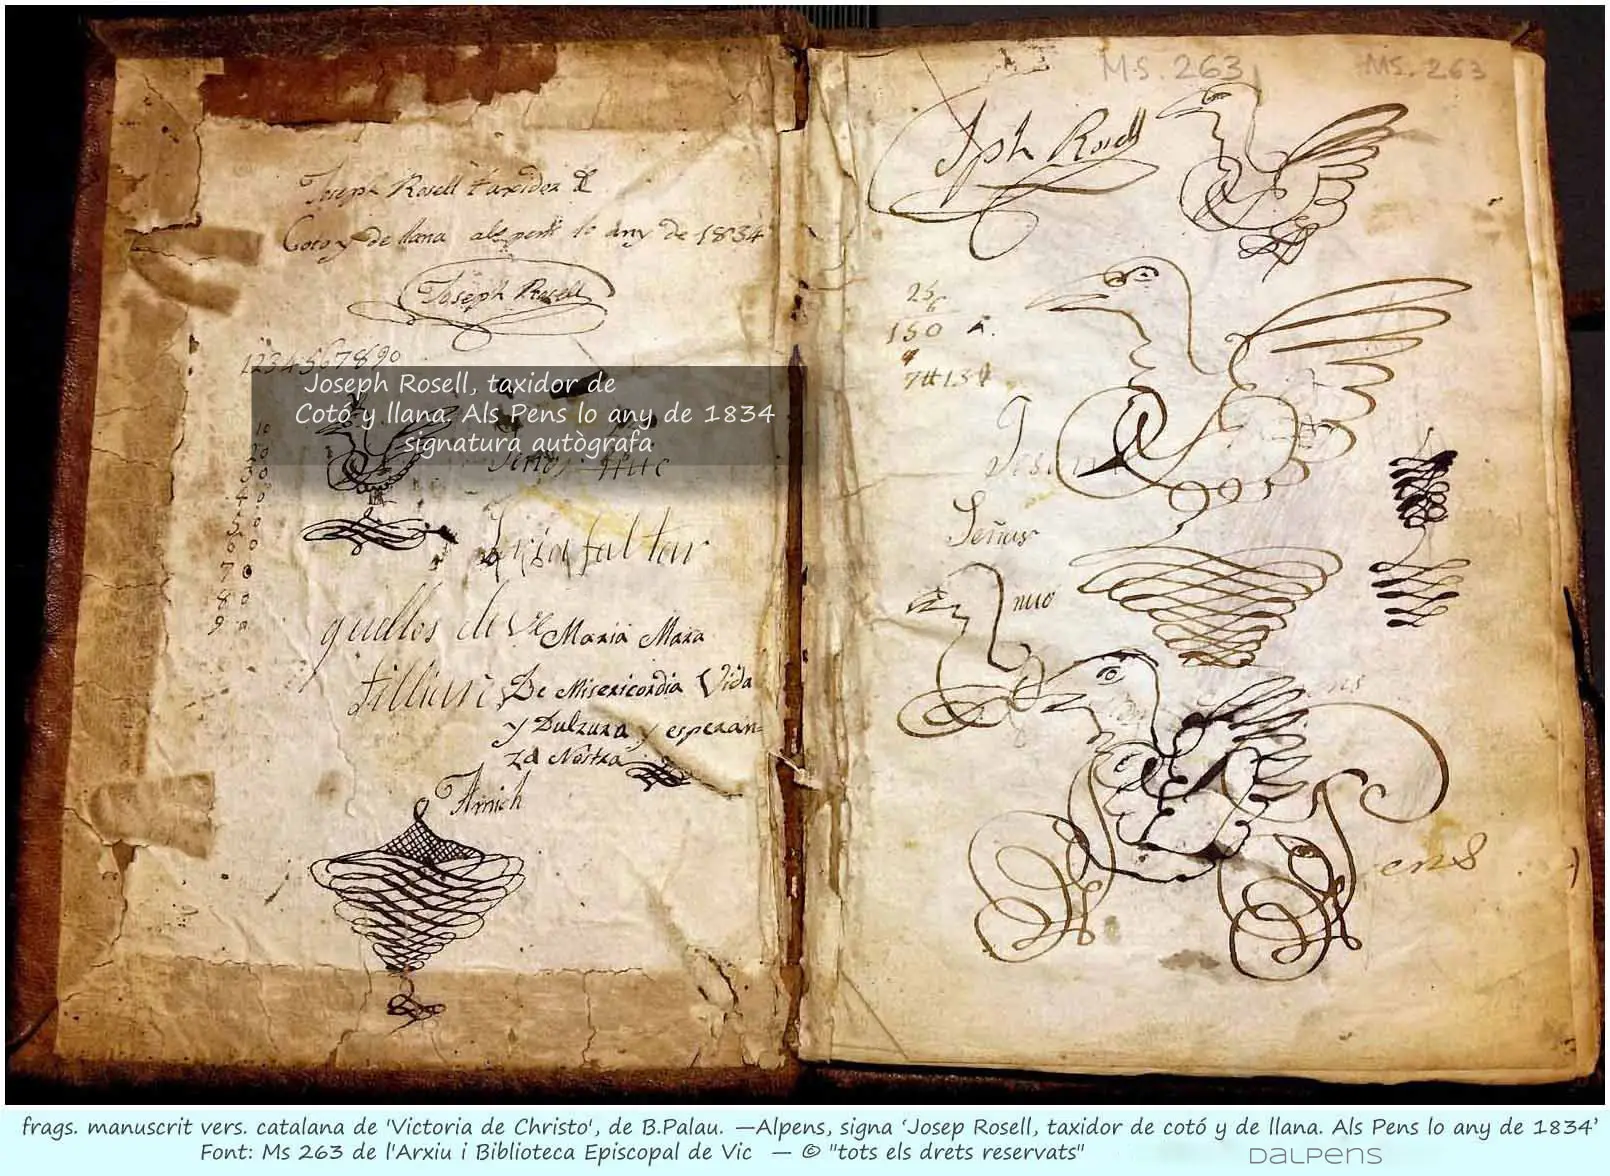 Joseph Rosell taxidor de
Coto y de llana als pens lo any de 1834
Joseph Rosell
1234567890
Joseph Rosell, taxidor de
Cotó y llana. Als Pens lo any de 1834
signatura autògrafa
10
20
30
40
50
60
70
80
90
faltar
quellos de
Maria Mara
De Misericordia Vida
y Dulzura y esperan-
za Nostra
Amich
MS. 263
MS. 263
Jph Rosell
25
6
150
Señor
ens
frags. manuscrit vers. catalana de 'Victoria de Christo', de B.Palau. —Alpens, signa ‘Josep Rosell, taxidor de cotó y de llana. Als Pens lo any de 1834’
Font: Ms 263 de l'Arxiu i Biblioteca Episcopal de Vic — © "tots els drets reservats"
DALPENS